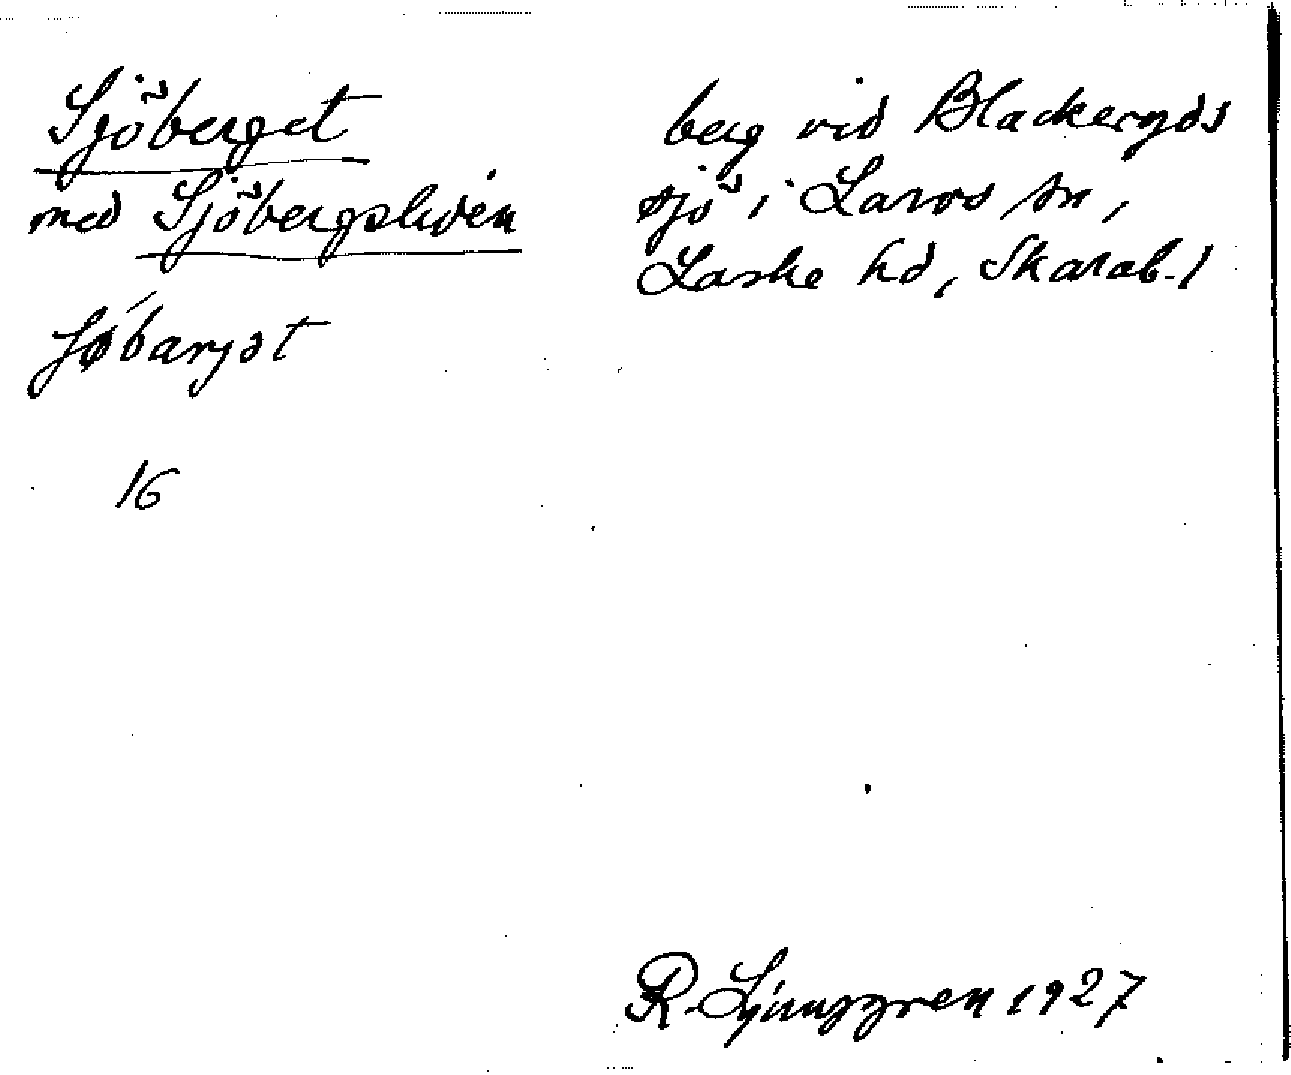 Sjöberget
med Sjöbergsliden
berg vid Blackeryds
sjö i Larvs sn,
Laske hd, Skarab. l
16
R. Ljunggren 1927